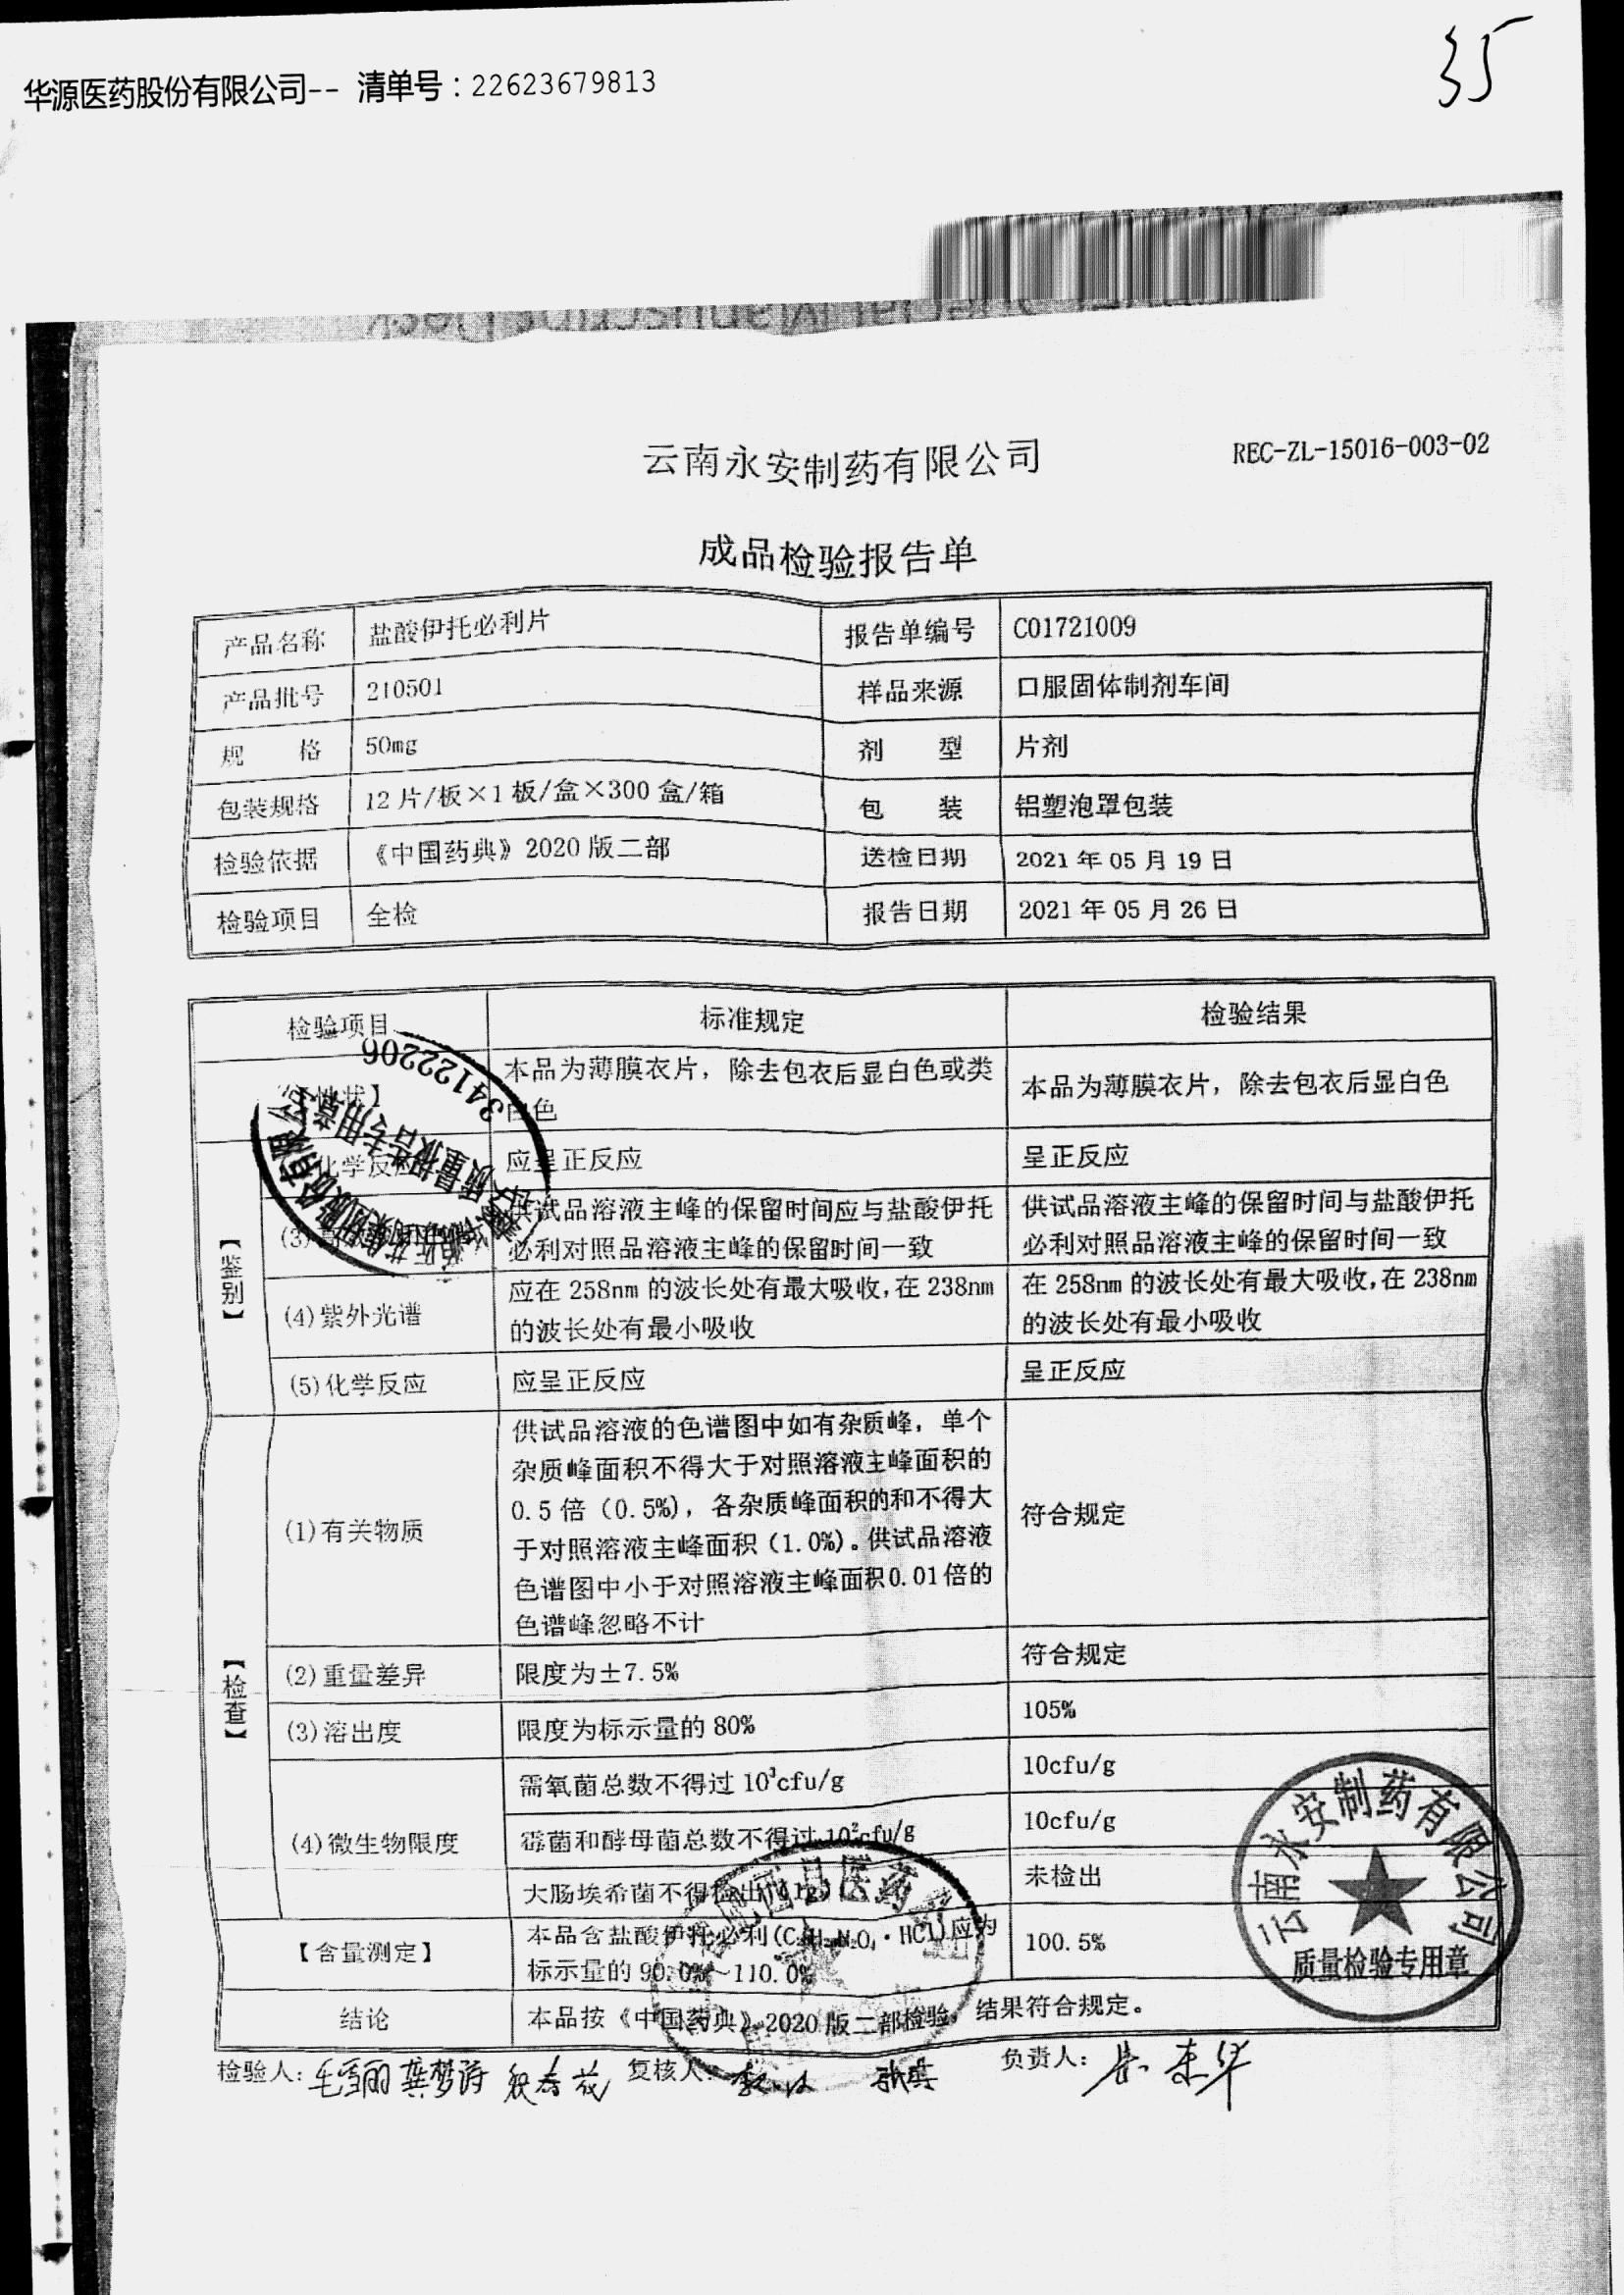 华源医药股份有限公司-- 清单号：22623679813
35
云南永安制药有限公司
REC-ZL-15016-003-02
成品检验报告单
产品名称 盐酸伊托必利片 报告单编号 C01721009
产品批号 210501 样品来源 口服固体制剂车间
规 格 50mg 剂 型 片剂
包装规格 12片/板×1板/盒×300盒/箱 包 装 铝塑泡罩包装
检验依据 《中国药典》2020版二部 送检日期 2021年05月19日
检验项目 全检 报告日期 2021年05月26日
检验项目 标准规定 检验结果
本品为薄膜衣片，除去包衣后显白色或类
白色
本品为薄膜衣片，除去包衣后显白色
341122206
质量报告专用章
【鉴别】
化学反应 应呈正反应 呈正反应
(3)
供试品溶液主峰的保留时间应与盐酸伊托
必利对照品溶液主峰的保留时间一致
供试品溶液主峰的保留时间与盐酸伊托
必利对照品溶液主峰的保留时间一致
(4)紫外光谱
应在258nm的波长处有最大吸收,在238nm
的波长处有最小吸收
在258nm的波长处有最大吸收,在238nm
的波长处有最小吸收
(5)化学反应 应呈正反应 呈正反应
【检查】
(1)有关物质
供试品溶液的色谱图中如有杂质峰，单个
杂质峰面积不得大于对照溶液主峰面积的
0.5倍（0.5%），各杂质峰面积的和不得大
于对照溶液主峰面积（1.0%）。供试品溶液
色谱图中小于对照溶液主峰面积0.01倍的
色谱峰忽略不计
符合规定
(2)重量差异 限度为±7.5% 符合规定
(3)溶出度 限度为标示量的80% 105%
(4)微生物限度
需氧菌总数不得过10³cfu/g 10cfu/g
霉菌和酵母菌总数不得过10²cfu/g 10cfu/g
大肠埃希菌不得检出(1g) 未检出
【含量测定】
本品含盐酸伊托必利 HCl)应为
标示量的90.0%~110.0%
100.5%
结论 本品按《中国药典》2020版二部检验，结果符合规定。
云南永安制药有限公司
质量检验专用章
检验人: 复核人: 负责人: